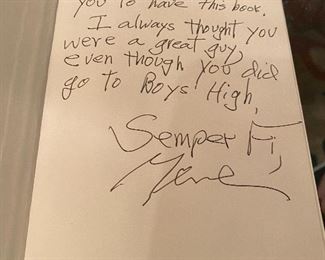 you to have this book.
I always thought you
were a great guy,
even though you did
go to Boys High,
Semper Fi,